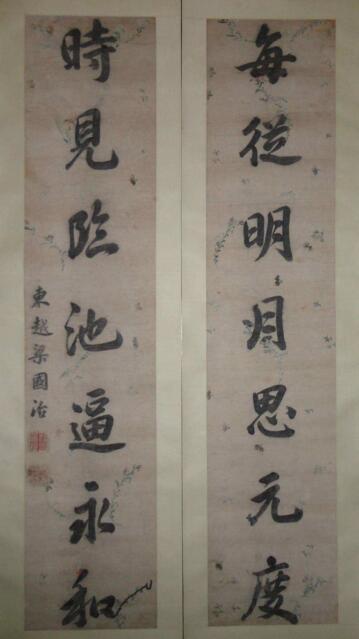 每從明月思元度
時見臨池逼永和
東越梁國治